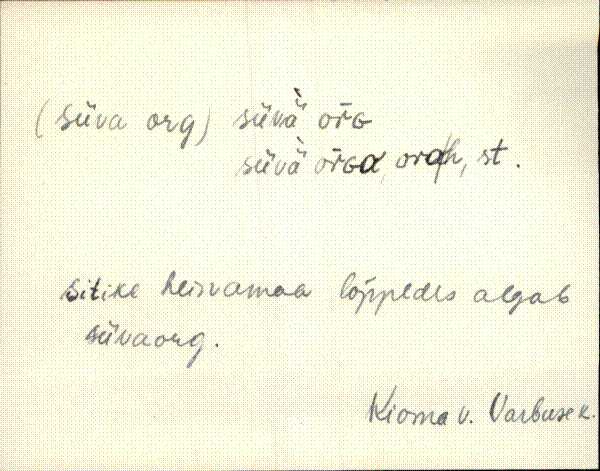 (süva org) süvä̀ òrG
süvä̀ òrGɑ, orɑh, st.
sitike heinamaa lõppedes algab
süvaorg.
Kioma v. Varbuse k.